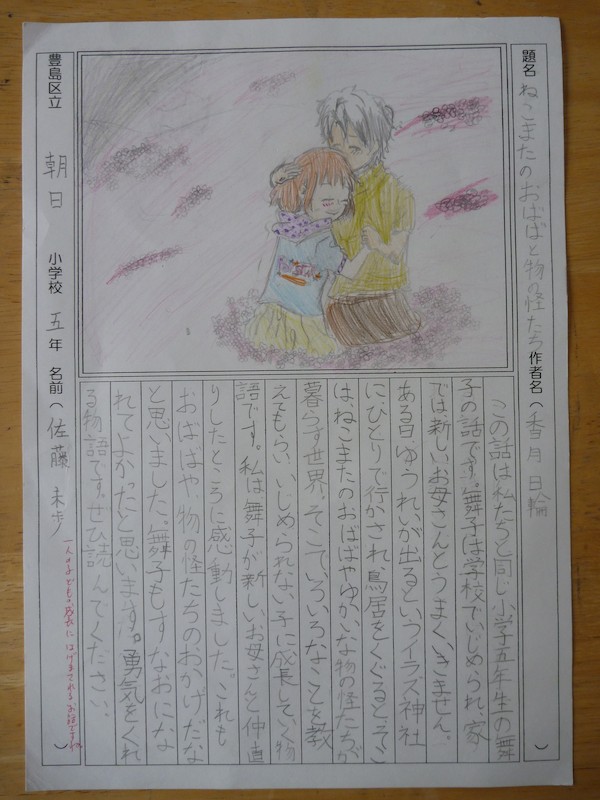 題名 ねこまたのおばばと物の怪たち 作者名（ 香月 日輪 ）
この話は私たちと同じ小学五年生の舞
子の話です。舞子は学校でいじめられ、家
では新しいお母さんとうまくいきません。
ある日、ゆうれいが出るというイラズ神社
にひとりで行かされ、鳥居をくぐるとそこ
は、ねこまたのおばばやゆかいな物の怪たちが
暮らす世界。そこで、いろいろなことを教
えてもらい、いじめられない子に成長していく物
語です。私は舞子が新しいお母さんと仲直
りしたところに感動しました。これも
おばばや、物の怪たちのおかげだな
と思いました。舞子もすなおにな
れてよかったと思います。勇気をくれ
る物語です。ぜひ読んでください。
豊島区立 朝日 小学校 五年 名前（ 佐藤 未歩 ）
一人の子どもの成長にはげまされるお話ですね